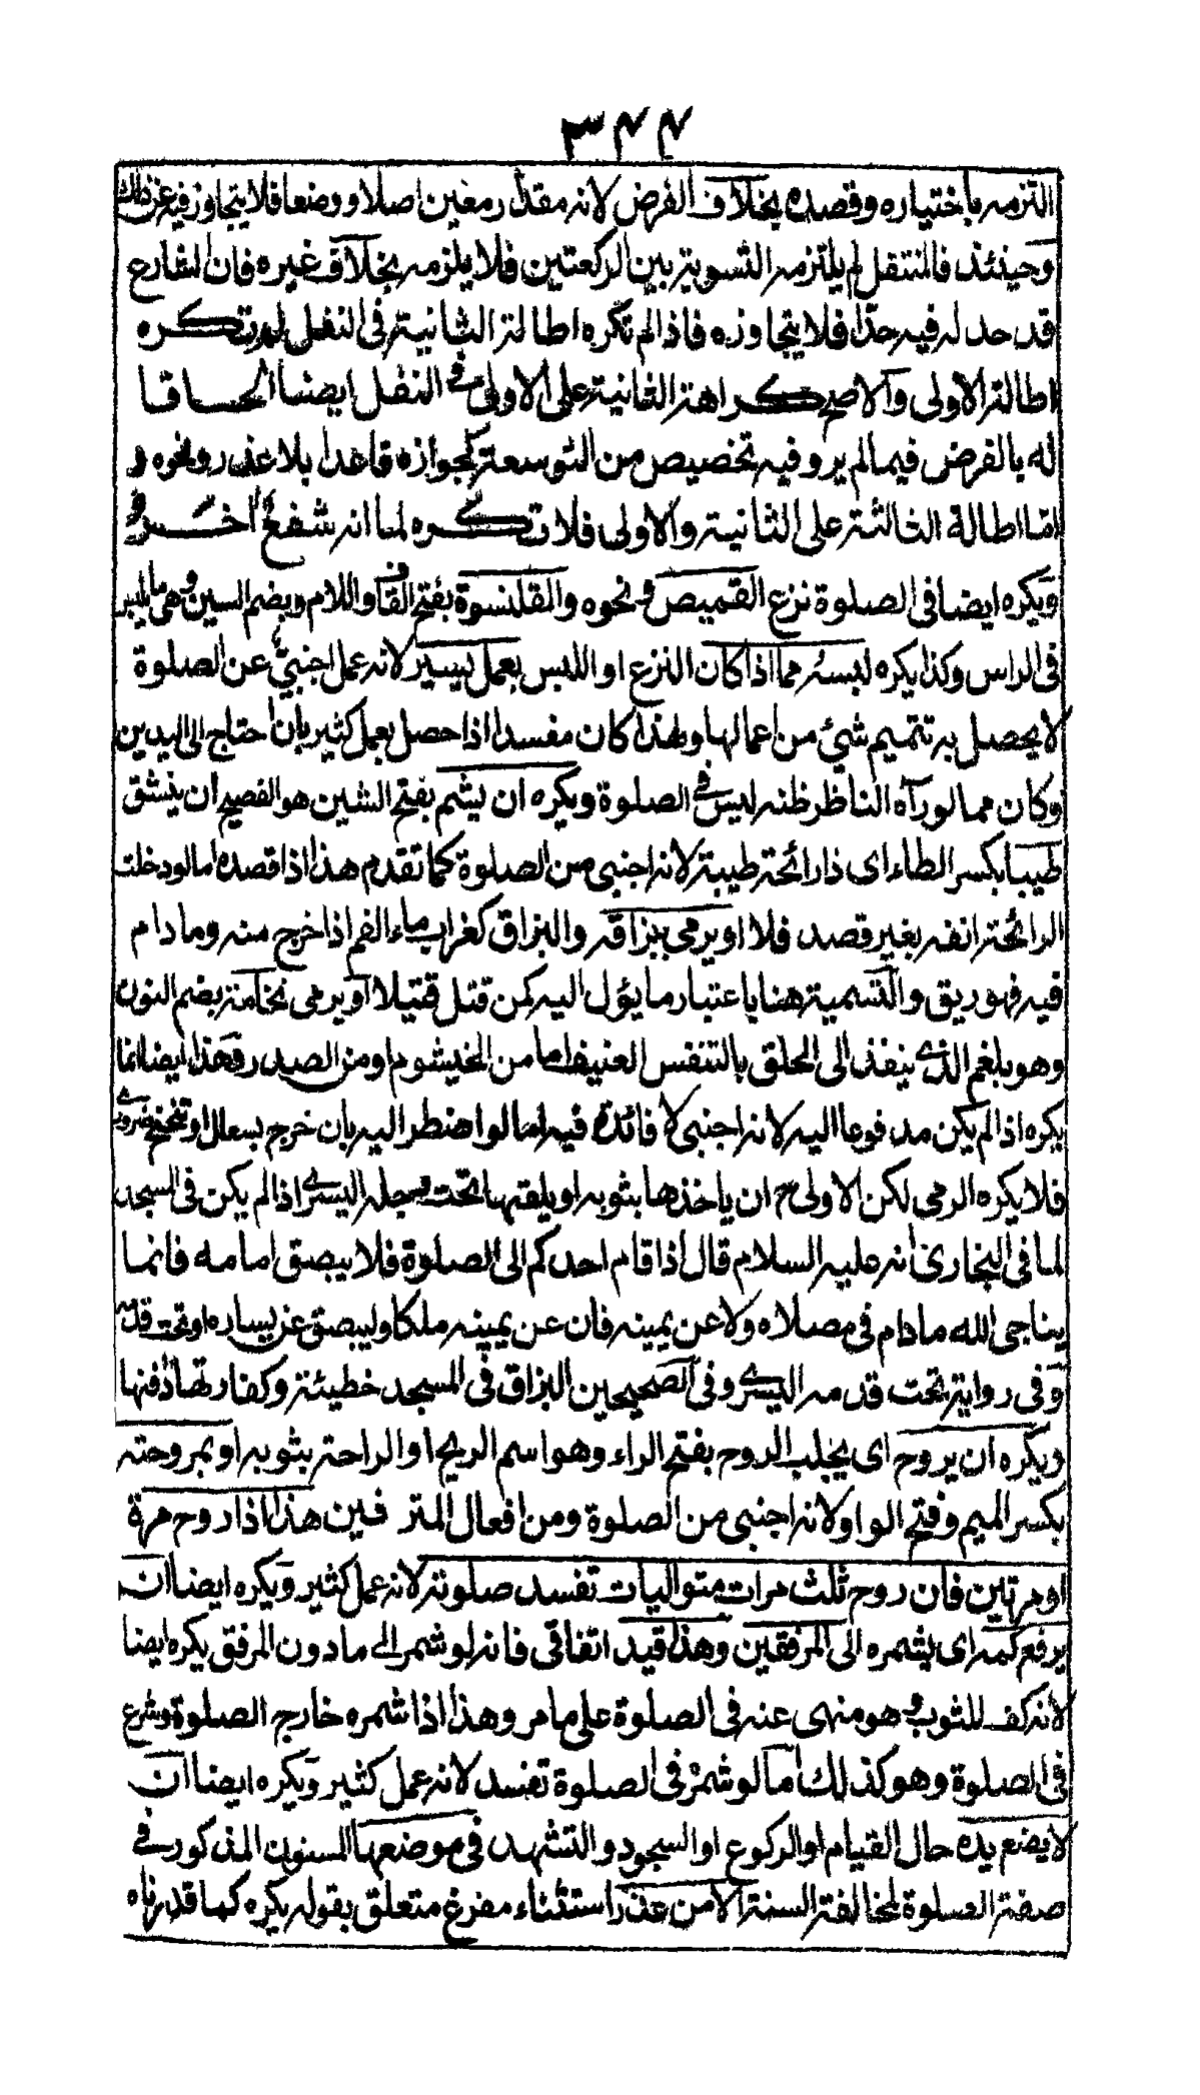 ٣٤٤
التزمه باختياره وقصده بخلاف الفرض لانه مقدر معين اصلا ووضعا فلا يتجاوز فيه عن ذلك
وحينئذ فالمنتفل لم يلتزمه التسوية بين الركعتين فلا يلزمه بخلاف غيره فان الشارع
قد حد له فيه حدا فلا يتجاوزه فاذا لم تكره اطالة الثانية فى النفل لم تكره
اطالة الاولى والاصح كراهة الثانية على الاولى فى النفل ايضا الحاقا
له بالفرض فيما لم يرو فيه تخصيص من التوسعة كجوازه قاعدا بلا عذر ونحوه و
اما اطالة الثالثة على الثانية والاولى فلا تكره لما انه شفع اخر
ويكره ايضا فى الصلوة نزع القميص ونحوه والقلنسوة بفتح القاف واللام وبضم السين وهى ما يلبس
فى الراس وكذا يكره لبسه مما اذا كان النزع او اللبس بعمل يسير لانه عمل اجنبى عن الصلوة
لا يحصل به تتميم شئ من اعمالها ولهذا كان مفسدا اذا حصل بعمل كثير بان احتاج الى اليدين
وكان مما لو رآه الناظر ظنه ليس فى الصلوة ويكره ان يشم بفتح الشين هو الفصيح ان ينشق
طيبا بكسر الطاء اى ذا رائحة طيبة لانه اجنبى من الصلوة كما تقدم هذا اذا قصده اما لو دخلت
الرائحة انفه بغير قصد فلا او يرمى ببزاقه والبزاق كغراب ماء الفم اذا خرج منه وما دام
فيه فهو ريق والتسمية هنا باعتبار ما يؤل اليه كمن قتل قتيلا او يرمى نخامته بضم النون
وهو بلغم الذى ينفذ الى الحلق بالتنفس العنيف اما من الخيشوم او من الصدر وهذا ايضا انما
يكره اذا لم يكن مدفوعا اليه لانه اجنبى لا فائدة فيه اما لو اضطر اليه بان خرج بسعال او تنحنح ضرورى
فلا يكره الرمى لكن الاولى ح ان ياخذها بثوبه او يلقيها تحت رجله اليسرى اذا لم يكن فى المسجد
لما فى البخارى انه عليه السلام قال اذا قام احدكم الى الصلوة فلا يبصق امامه فانما
يناجى الله مادام فى مصلاه ولا عن يمينه فان عن يمينه ملكا وليبصق عن يساره او تحت قدمه
وفى رواية تحت قدمه اليسرى وفى الصحيحين البزاق فى المسجد خطيئة وكفارتها دفنها
ويكره ان يروح اى يجلب الروح بفتح الراء وهو اسم الريح او الراحة بثوبه او بمروحته
بكسر الميم وفتح الواو لانه اجنبى من الصلوة ومن افعال المترفين هذا اذا روح مرة
او مرتين فان روح ثلث مرات متواليات تفسد صلوته لانه عمل كثير ويكره ايضا ان
يرفع كمه اى يشمره الى المرفقين وهذا قيد اتفاقى فانه لو شمر الى ما دون المرفق يكره ايضا
لانه كف للثوب وهو منهى عنه فى الصلوة على ما مر وهذا اذا شمره خارج الصلوة وشرع
فى الصلوة وهو كذلك اما لو شمر فى الصلوة تفسد لانه عمل كثير ويكره ايضا ان
لا يضع يده حال القيام او الركوع او السجود والتشهد فى موضعها المسنون المذكور فى
صفة الصلوة لمخالفة السنة الا من عذر استثناء مفرغ متعلق بقوله يكره كما قدرناه